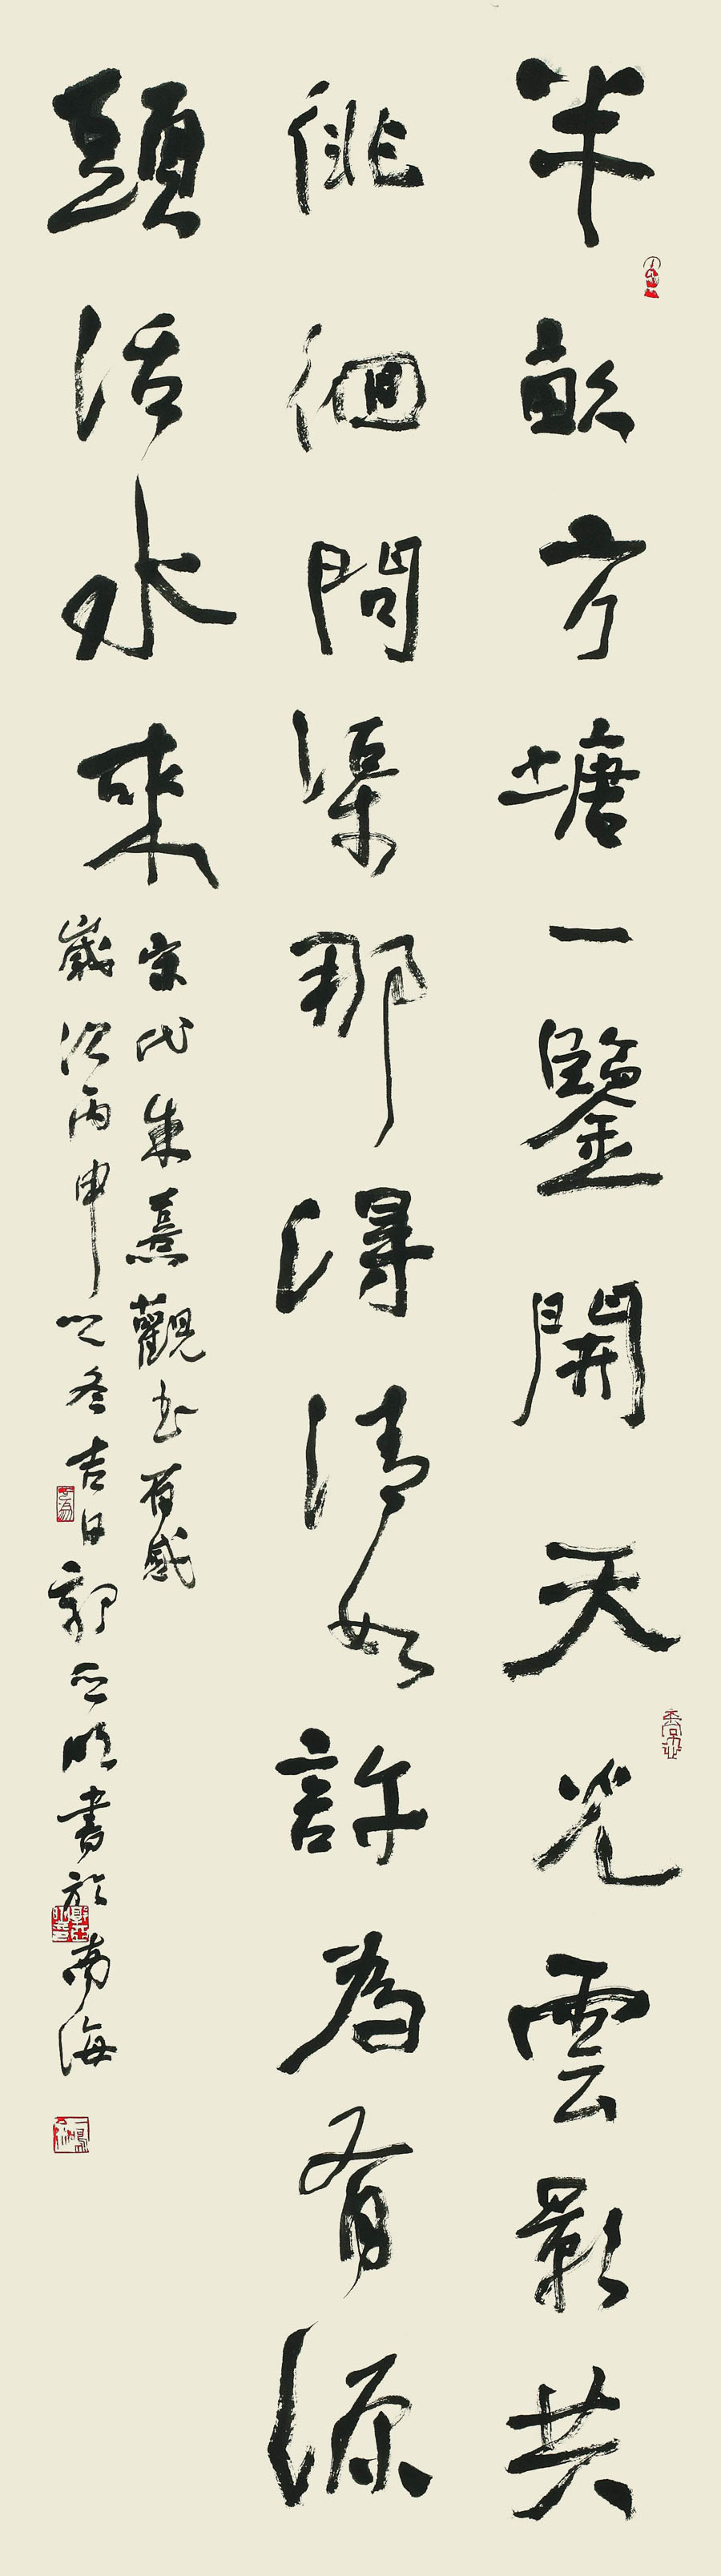 半畝方塘一鑒開天光雲影共
徘徊問渠那得清如許為有源
頭活水來
宋代朱熹觀書有感
歲次丙申之冬吉日郭亞明書於南海